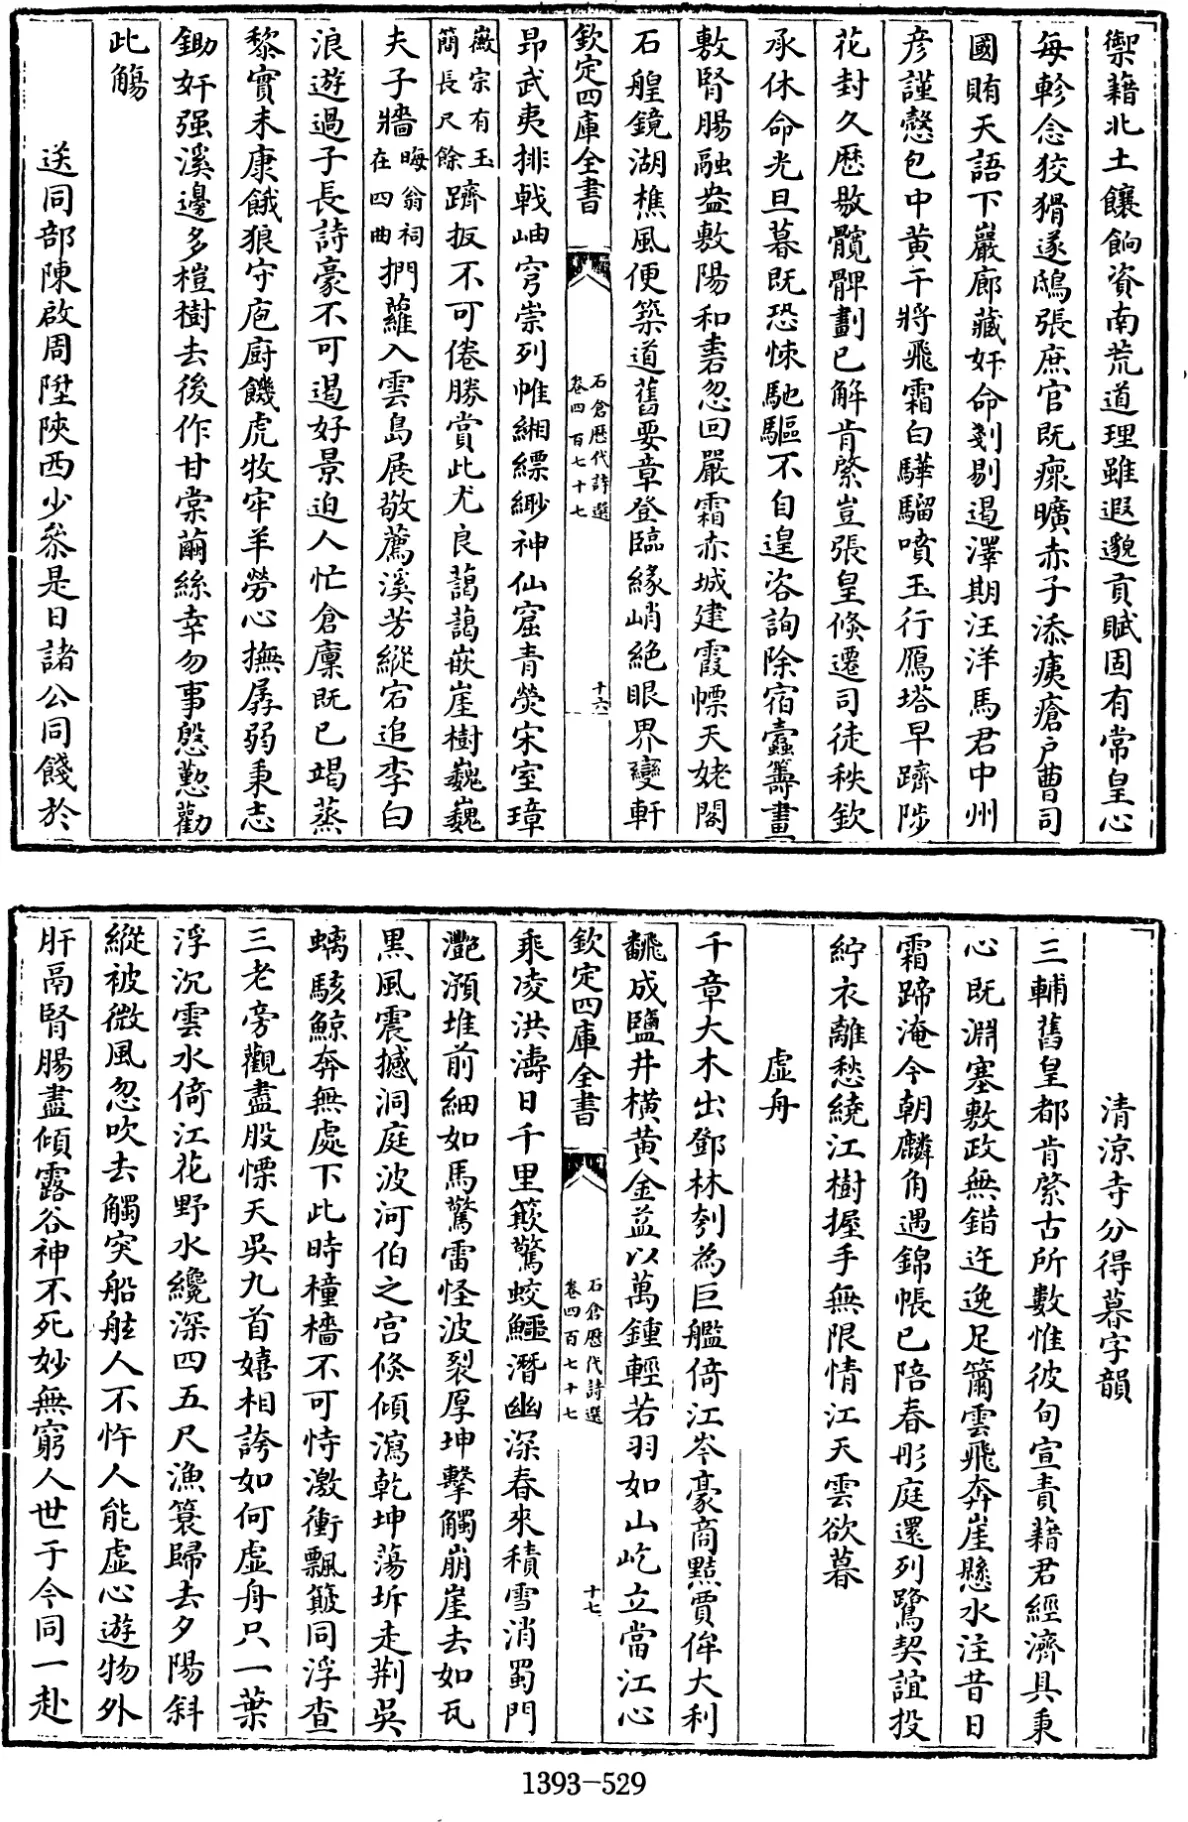 禦藉北土饟餉資南荒道理雖遐邈貢賦固有常皇心
每軫念狡猾遂鴟張庶官既瘝曠赤子添痍瘡戶曹司
國賄天語下巖廊藏奸命剗剔遏澤期汪洋馬君中州
彥謹慤包中黃干將飛霜白驊騮噴玉行鴈塔早躋陟
花封久歷敭髖髀劃已解肯綮豈張皇倐遷司徒秩欽
承休命光旦暮既恐悚馳驅不自遑咨詢除宿蠧籌畫
敷腎腸融盎敷陽和書忽回嚴霜赤城建霞幖天姥閣
石艎鏡湖樵風便築道舊要章登臨緣峭絕眼界變軒
欽定四庫全書
石倉歷代詩選
卷四百七十七
十六
昻武夷排戟岫穹崇列帷緗縹緲神仙窟青熒宋室璋
徽宗有玉
簡長尺餘
躋扳不可倦勝賞此尤良藹藹嵌崖樹巍巍
夫子牆
晦翁祠
在四曲
捫蘿入雲島展敬薦溪芳縱宕追李白
浪遊過子長詩豪不可遏好景迫人忙倉廩既已竭蒸
黎實未康餓狼守庖廚饑虎牧牢羊勞心撫孱弱秉志
鋤奸强溪邊多榿樹去後作甘棠繭絲幸勿事慇懃勸
此觴
送同部陳啟周陞陝西少叅是日諸公同餞於
清涼寺分得暮字韻
三輔舊皇都肯綮古所數惟彼旬宣責藉君經濟具秉
心既淵塞敷政無錯迕逸足籋雲飛奔崖懸水注昔日
霜蹄淹今朝麟角遇錦帳已陪春彤庭還列鷺契誼投
紵衣離愁繞江樹握手無限情江天雲欲暮
虛舟
千章大木出鄧林刳為巨艦倚江岑豪商黠賈侔大利
飜成鹽井橫黃金益以萬鍾輕若羽如山屹立當江心
欽定四庫全書
石倉歷代詩選
卷四百七十七
十七
乘凌洪濤日千里簸驚蛟鱷潛幽深春來積雪消蜀門
灔澦堆前細如馬驚雷怪波裂厚坤擊觸崩崖去如瓦
黑風震撼洞庭波河伯之宫倐傾瀉乾坤蕩坼走荆吳
螭駭鯨奔無處下此時橦檣不可恃激衝飄簸同浮查
三老旁觀盡股慄天吳九首嬉相誇如何虛舟只一葉
浮沉雲水倚江花野水纔深四五尺漁蓑歸去夕陽斜
縱被微風忽吹去觸突船舷人不忤人能虛心遊物外
肝鬲腎腸盡傾露谷神不死妙無窮人世于今同一赴
1393-529